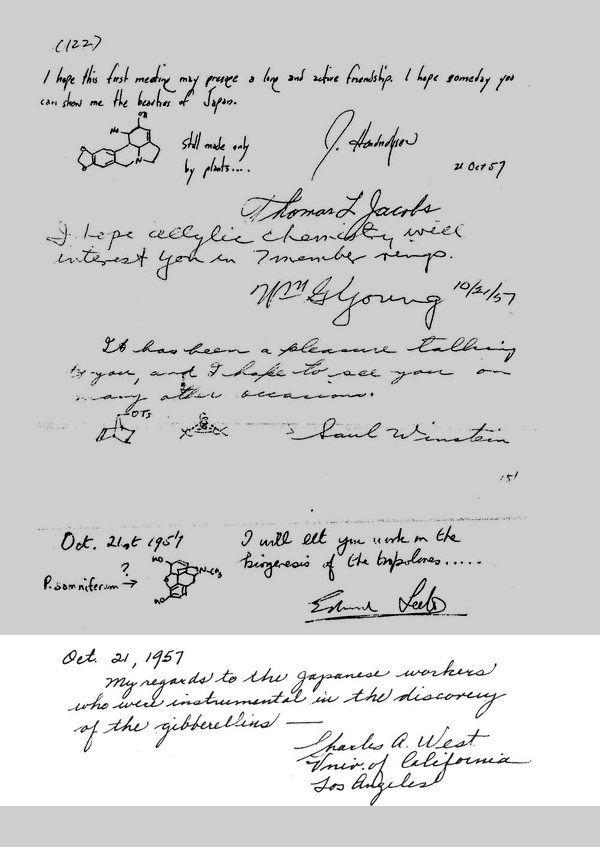 (122)
I hope this first meeting may presage a long and active friendship. I hope someday you
can show me the beauties of Japan.
OH
HO
O
O
N
still made only
by plants....
J. Hendrickson
21 Oct 57
Thomas L Jacobs
I hope allylic chemistry will
interest you in 7 member rings.
Wm G Young 10/21/57
It has been a pleasure talking
to you, and I hope to see you on
many other occasions.
OTs
Saul Winstein
Oct. 21st 1957
I will let you work on the
biogenesis of the tropolones.....
?
P. somniferum →
HO
O
N-CH3
HO
Edward Leete
Oct. 21, 1957
My regards to the Japanese workers
who were instrumental in the discovery
of the gibberellins —
Charles A. West
Univ. of California
Los Angeles